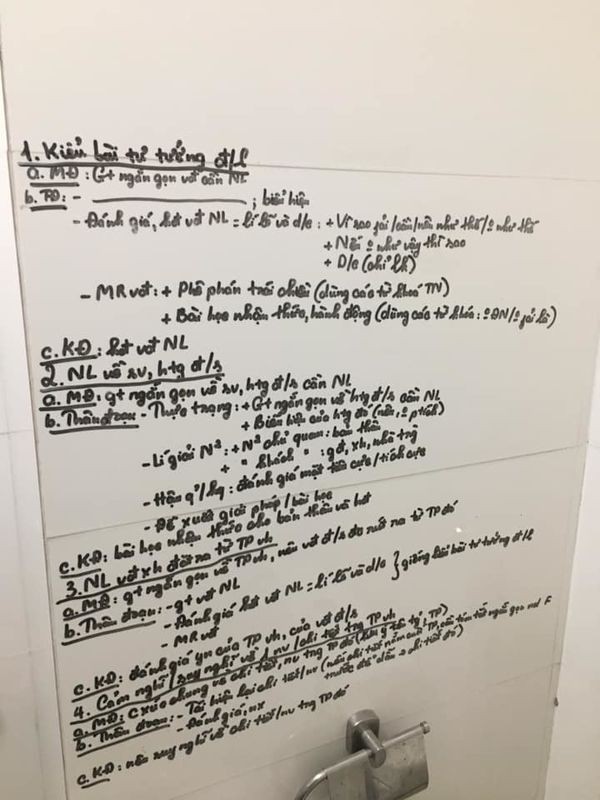 1. Kiểu bài tư tưởng đ/l
a. MĐ: Gt ngắn gọn vđ cần NL
b. TĐ: - ; biểu hiện
- Đánh giá, bàn vđ NL = lí lẽ và d/c: + Vì sao
+ Nếu như vậy thì sao
+ D/c
- MR vđ: + Phê phán trái chiều (dùng các từ khoá TN)
+ Bài học nhận thức, hành động (dùng các từ khóa:
c. KĐ: vđ NL
2. NL về sv, htg đ/s
a. MĐ: gt ngắn gọn về sv, htg đ/s cần NL
b. Thân đoạn: - Thực trạng: + Gt ngắn gọn về htg đ/s cần NL
+ Biểu hiện của htg đó
- Lí giải N²: + N² chủ quan: bản thân
+ " khách " : gđ, xh, nhà trg
- Hậu q'/kq: đánh giá mặt tiêu cực/tích cực
- Đề xuất giải pháp/bài học
c. KĐ: bài học nhận thức cho bản thân và
3. NL vđ xh đặt ra từ TP vh
a. MĐ: gt ngắn gọn về TP vh, nêu vđ đ/s đc rút ra từ TP đó
b. Thân đoạn: - gt vđ NL
- Đánh giá vđ NL = lí lẽ và d/c } giống bài tư tưởng đ/l
- MR vđ
c. KĐ: đánh giá yn của TP vh, của vđ đ/s
4. Cảm nghĩ/suy nghĩ về 1 nv/chi tiết trg TP vh
a. MĐ: c xúc chung về chi tiết, nv trg TP đó
b. Thân đoạn: - Tái hiện lại chi tiết/nv
- Đánh giá, nx
c. KĐ: nêu suy nghĩ về chi tiết/nv trg TP đó